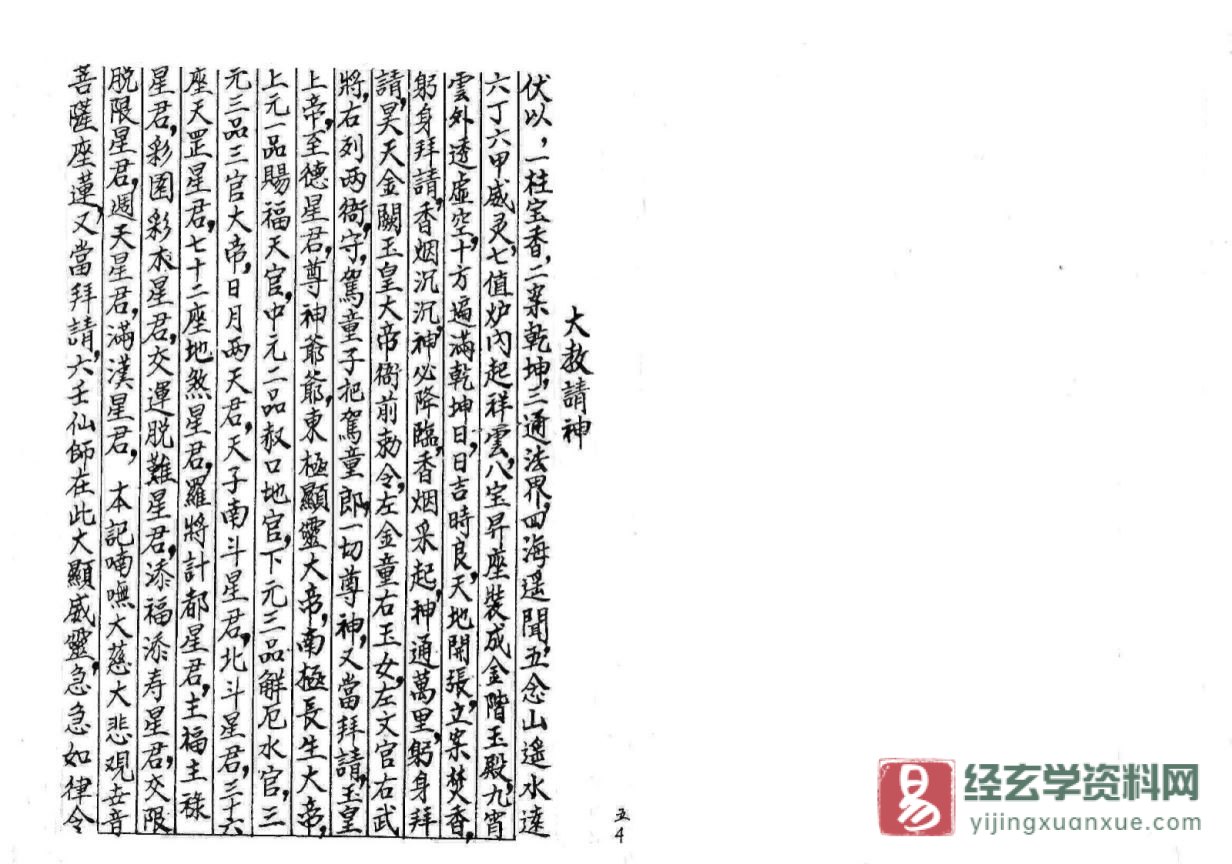 大教請神
伏以，一柱宝香，二案乾坤，三通法界，四海遥聞，五念山遥水遠
六丁六甲威灵，七值炉内起祥雲，八宝昇座裝成金階玉殿，九宵
雲外透虚空，十方遍滿乾坤日，日吉時良，天地開張，立案焚香，
躬身拜請，香烟沉沉，神必降臨，香烟采起，神通萬里，躬身拜
請，昊天金闕玉皇大帝衙前勅令，左金童右玉女，左文官右武
將，右列两衙，守駕童子把駕童郎，一切尊神，又當拜請，玉皇
上帝，至德星君，尊神爺爺，東極顯靈大帝，南極長生大帝，
上元一品賜福天官，中元二品赦口地官，下元三品解厄水官，三
元三品三官大帝，日月两天君，天子南斗星君，北斗星君，三十六
座天罡星君，七十二座地煞星君，羅將計都星君，主福主祿
星君，彩图彩木星君，交運脱難星君，添福添寿星君，交限
脱限星君，週天星君，滿漢星君，本記喃嘸大慈大悲观世音
菩薩座蓮，又當拜請，六壬仙師在此大顯威靈，急急如律令
五4
易
经玄学资料网
yijingxuanxue.com